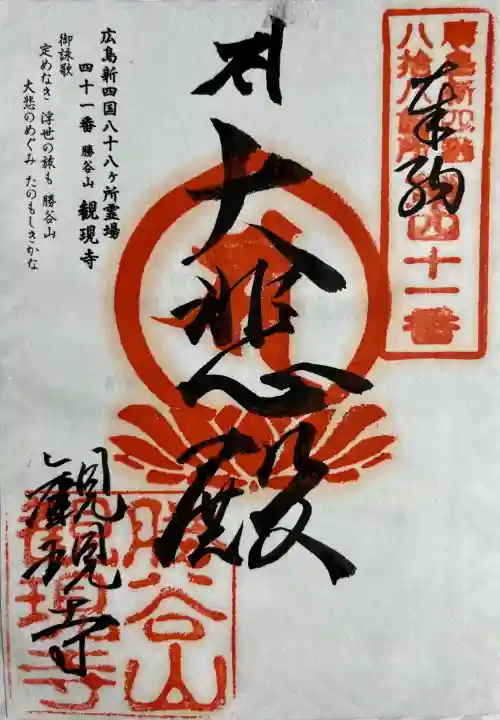 廣島新四國
八拾八箇所第四十一番
奉拝
大悲殿
広島新四国八十八ヶ所霊場
四十一番 勝谷山 観現寺
御詠歌
定めなき 浮世の旅も 勝谷山
大悲のめぐみ たのもしきかな
観現寺
勝谷山
観現寺